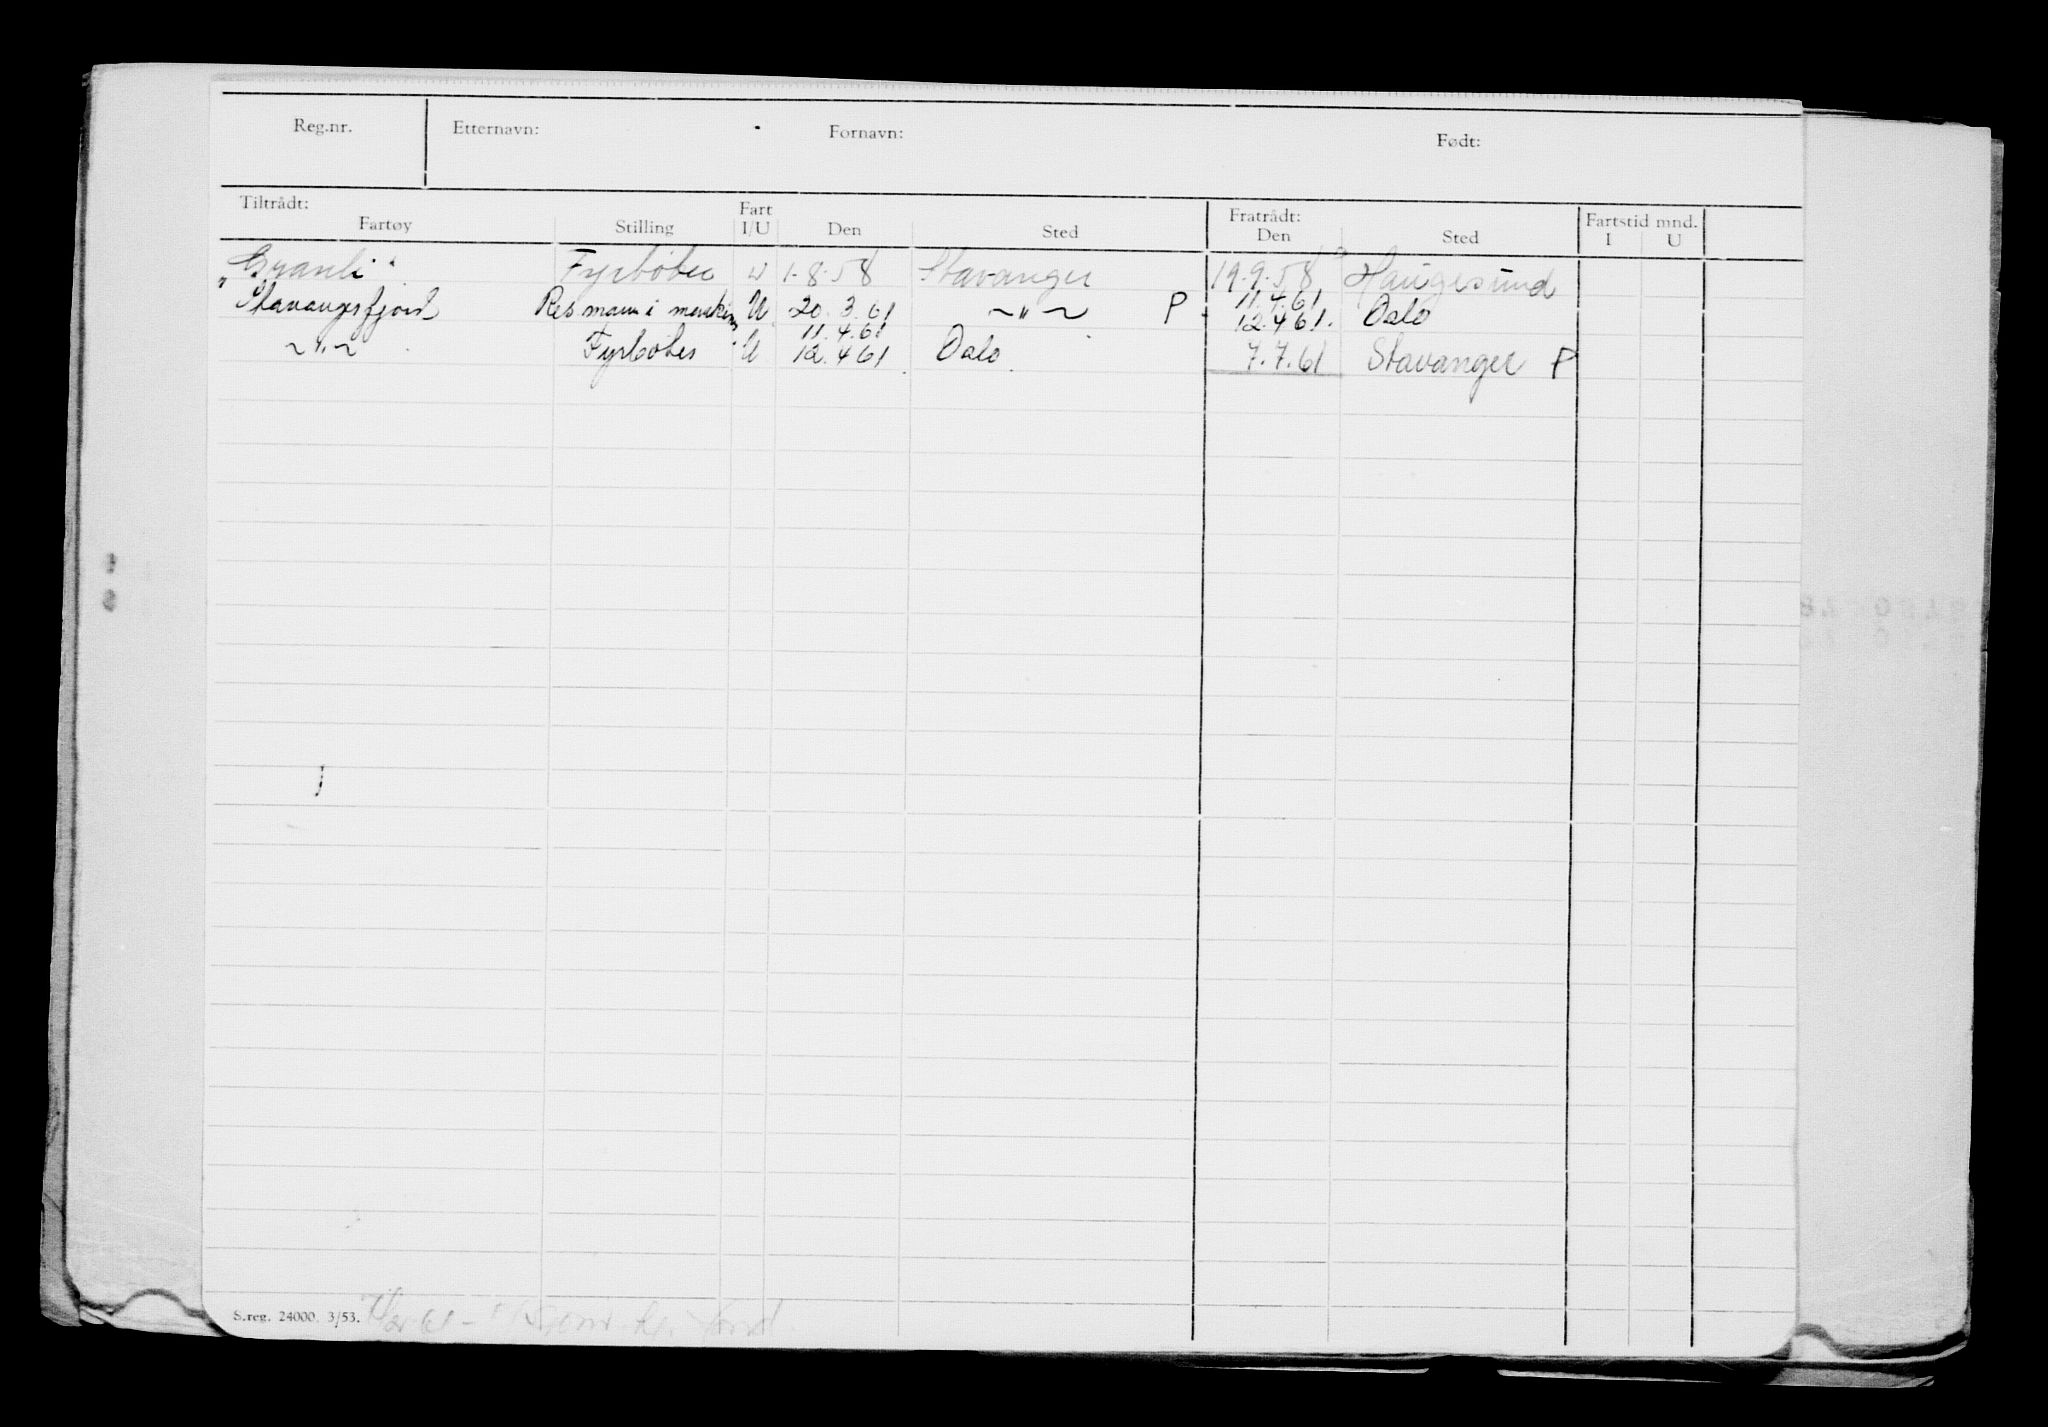 Reg.nr. Etternavn: Fornavn: Født:
Tiltrådt: Fart Fratrådt: Fartstid mnd.
Fartøy Stilling I/U Den Sted Den Sted I U
"Granli" Fyrbøter U 1.8.58 Stavanger 19.9.58 Haugesund
Stavangerfjord Res mann i maskin U 20.3.61 ~"~ P 11.4.61
12.4.61. Oslo
11.4.61
~"~ Fyrbøter U 12.4.61 Oslo 7.7.61 Stavanger P
S.reg. 24000. 3/53.